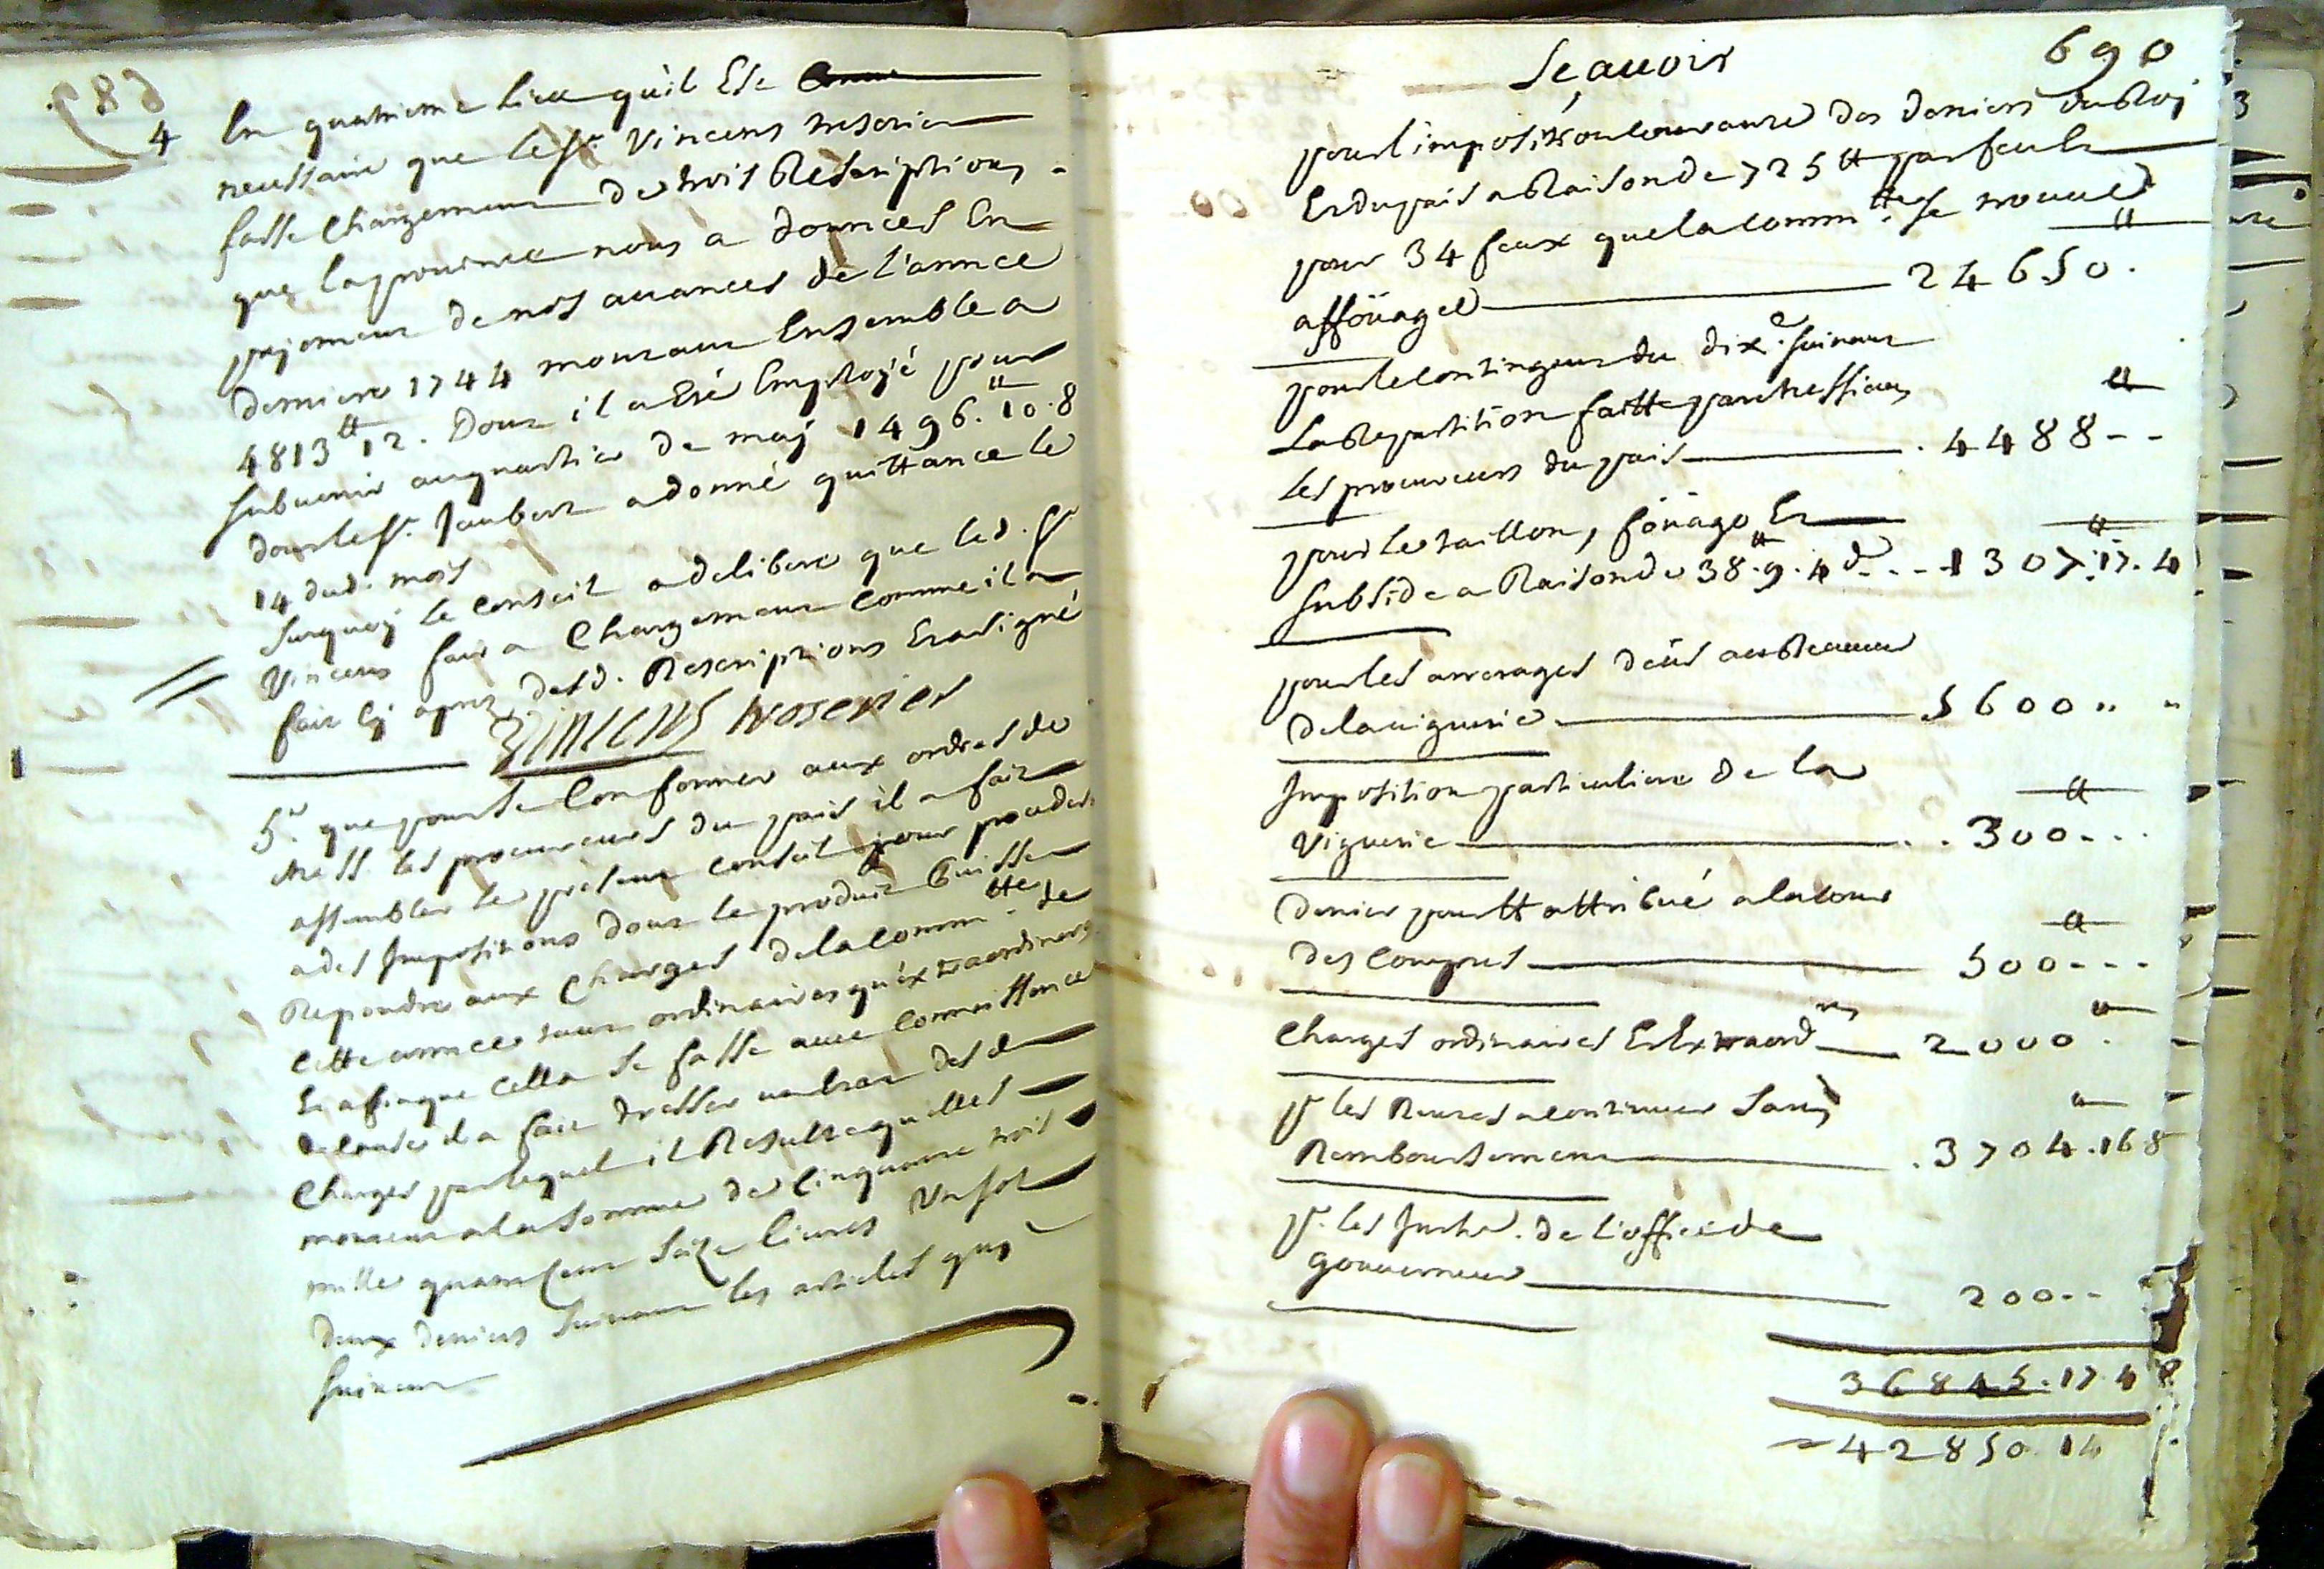 4 En quatrieme lieu qu'il Est
necessaire que le Sr. Vincens tresorier
fasse chargement de trois Rescriptions
que la province nous a données En
payement de nos avances de l'année
derniere 1744 montant Ensemble a
4813tt 12. Dont il a Eté Employé pour
subvenir au quartier de may 1496.tt 10.8
dont le Sr. Jaubert a donné quittance le
14 dud. mois
surquoy le Conseil a deliberé que led. Sr
Vincens fair a Chargement comme il a
fait cy apres desd. Rescriptions Et a signé
Vincens troserier
5° que pour se Conformer aux ordres de
Mess. les procureurs du païs il a fait
assembler le present conseil pour proceder
a des Impositions dont le produit Puisse
Repondre aux Charges de la Comm.tte de
cette année tant ordinaires qu'extraordinaires
Et afin que cella se fasse avec Connoissance
de cause il a fait dresser un Etat des d
Charges par lequel il Resulte qu'elles
montent a la somme de Cinquante trois
mille quatre Cent saize livres Un sol
deux deniers suivant les articles quy
suivent
690
Sçavoir
pour l'imposition courante des deniers du Roy
Et du païs a Raison de 725tt par feu Et
pour 34 feux que la Comm.tte se trouve
affoüagée 24650.tt
pour le contingent du dixe. suivant
La Repartition faitte par messieurs
Les procureurs du païs 4488--
pour le taillon, foüage Et
subside a Raison de 38.tt 9.4 d---1307.17.4
pour les arrerages deûs au Receveur
de la viguerie 5600 " "
Imposition particuliere de la
Viguerie 300---
denier pour tt attribué a la Cour
des Comptes 500---
Charges ordinaires Et Extraord.res 2000.
pr les Rentes a Continuer sans
Remboursement .3704.16 8
pr. les Inthe. de l'office de
gouverneur 200--
36845.17.4
42850.14